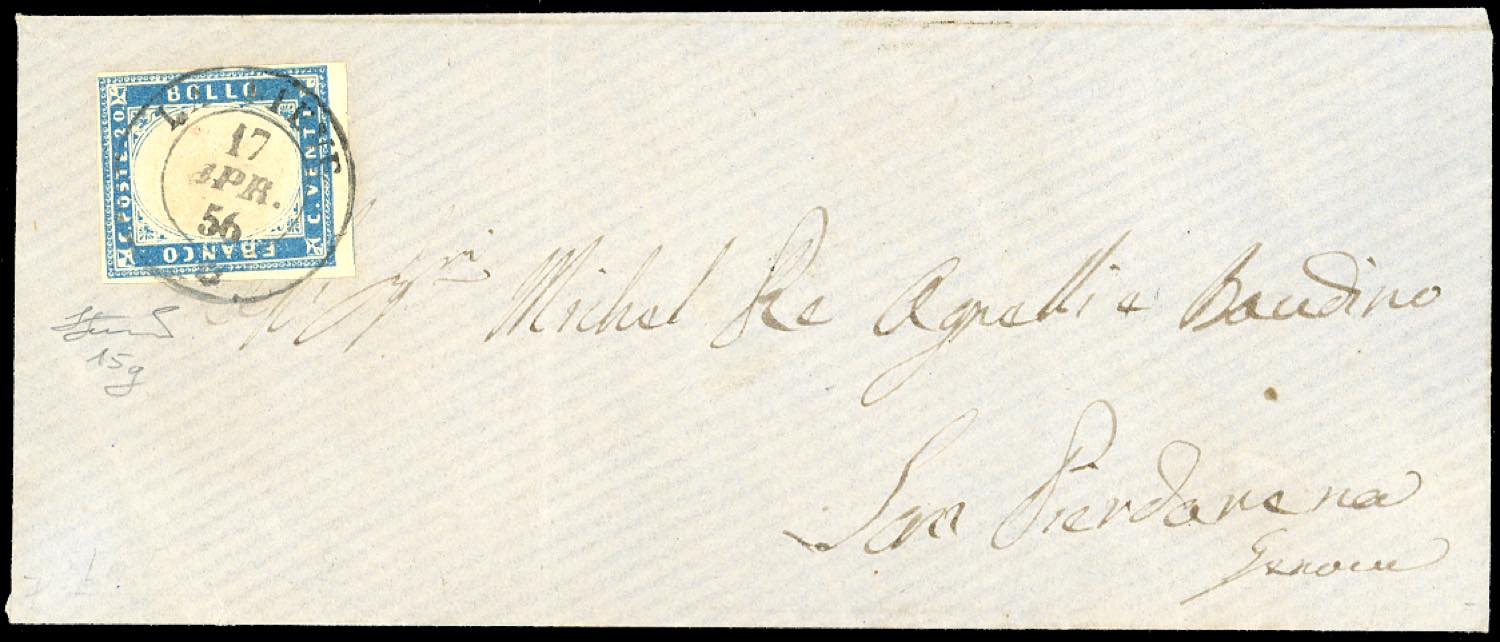 BOLLO
C. POSTE 20
C. VENTI
FRANCO
17
APR.
56
Michel Re Agnelli e Baudino
San Pierdarena
Genova
15g